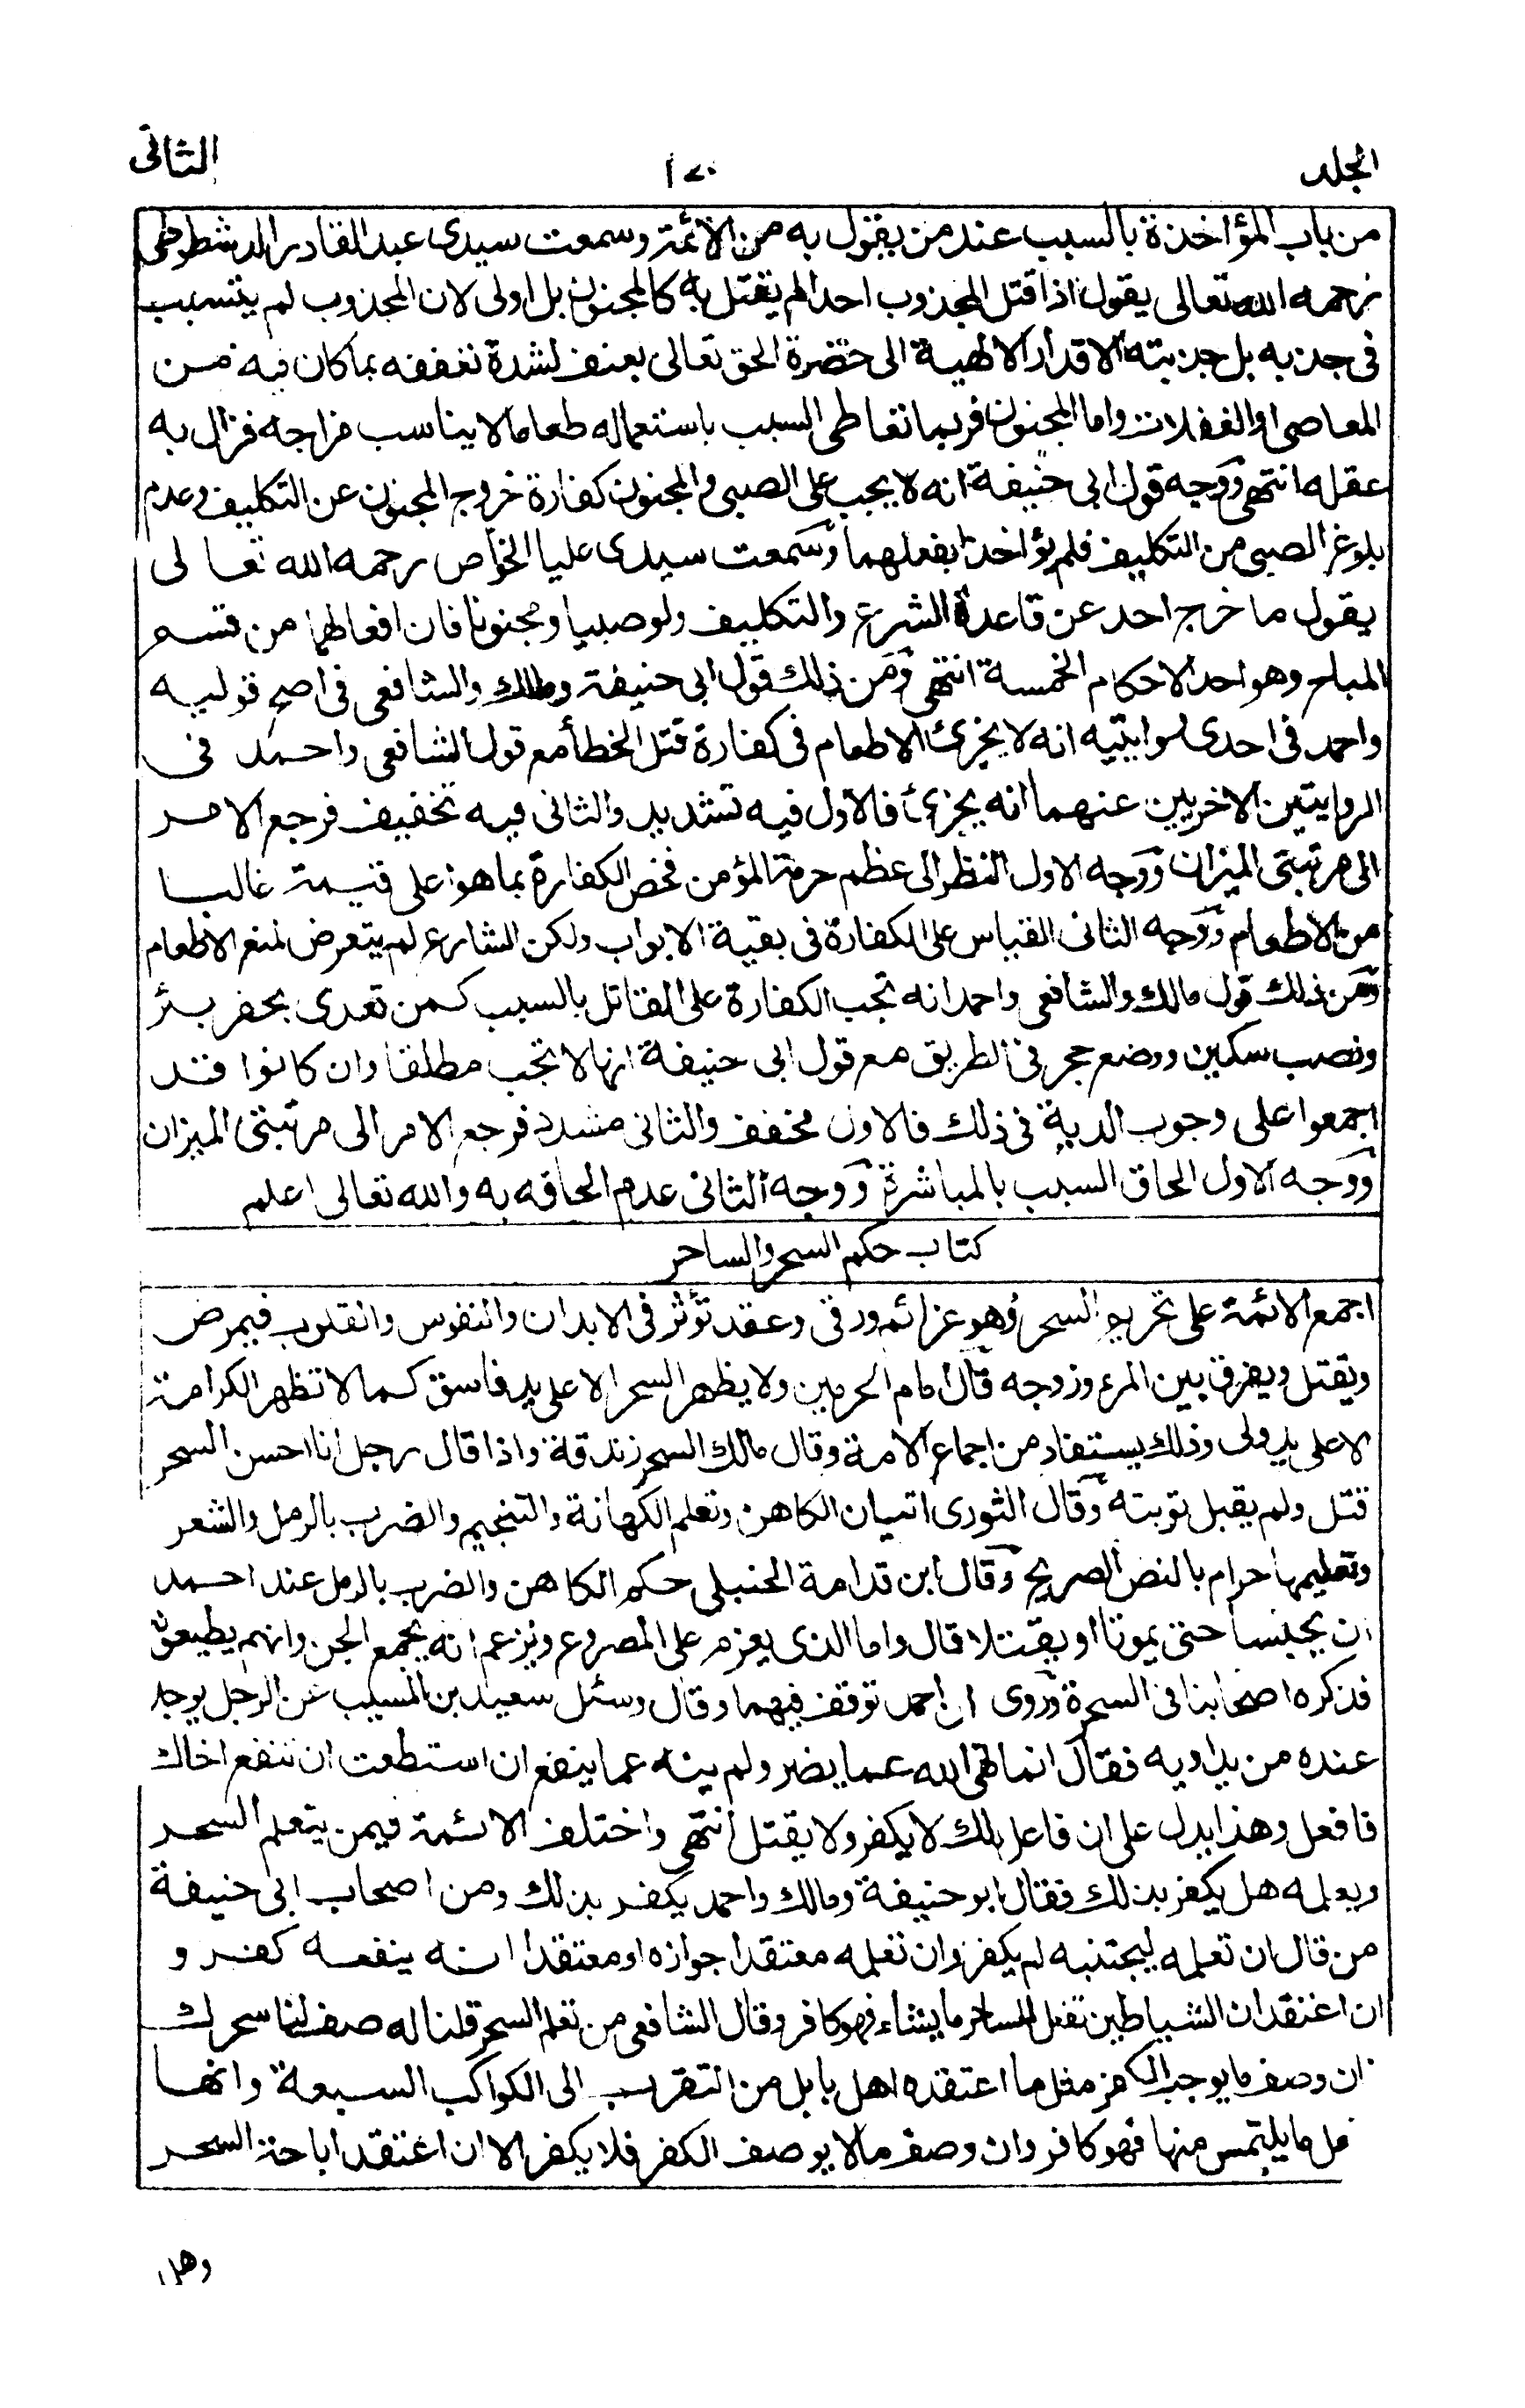 المجلد
١٧٠
الثانى
من باب المؤاخذة بالسبب عند من يقول به من الائمة وسمعت سيدى عبد القادر الدشطوطى
رحمه الله تعالى يقول اذا قتل المجذوب احدا لم يقتل به كالمجنون بل اولى لان المجذوب لم يتسبب
فى جذبه بل جذبته الاقدار الالهية الى حضرة الحق تعالى بعنف لشدة تعففه بما كان فيه من
المعاصى او الغفلات واما المجنون فربما تعاطى السبب باستعماله طعاما لا يناسب مزاجه فزال به
عقله انتهى ووجه قول ابى حنيفة انه لا يجب على الصبى والمجنون كفارة خروج المجنون عن التكليف وعدم
بلوغ الصبى من التكليف فلم يؤاخذا بفعلهما وسمعت سيدى عليا الخواص رحمه الله تعالى
يقول ما خرج احد عن قاعدة الشرع والتكليف ولو صبيا ومجنونا فان افعالهما من قسم
المباح وهو احد الاحكام الخمسة انتهى ومن ذلك قول ابى حنيفة ومالك والشافعى فى اصح قوليه
واحمد فى احدى روايتيه انه لا يجزئ الاطعام فى كفارة قتل الخطأ مع قول الشافعى واحمد فى
الروايتين الاخريين عنهما انه يجزئ فالاول فيه تشديد والثانى فيه تخفيف فرجع الامر
الى مرتبتى الميزان ووجه الاول النظر الى عظم حرمة المؤمن فخص الكفارة بما هو اعلى قيمة غالبا
من الاطعام ووجه الثانى القياس على الكفارة فى بقية الابواب ولكن الشارع لم يتعرض لمنع الاطعام
ومن ذلك قول مالك والشافعى واحمد انه تجب الكفارة على القاتل بالسبب كمن تعدى بحفر بئر
ونصب سكين ووضع حجر فى الطريق مع قول ابى حنيفة انها لا تجب مطلقا وان كانوا قد
اجمعوا على وجوب الدية فى ذلك فالاول مخفف والثانى مشدد فرجع الامر الى مرتبتى الميزان
ووجه الاول الحاق السبب بالمباشرة ووجه الثانى عدم الحاقه به والله تعالى اعلم
كتاب حكم السحر والساحر
اجمع الائمة على تحريم السحر وهو عزائم ورقى وعقد تؤثر فى الابدان والنفوس والقلوب فيمرض
ويقتل ويفرق بين المرء وزوجه قال امام الحرمين ولا يظهر السحر الا على يد فاسق كما لا تظهر الكرامة
الا على يد ولى وذلك يستفاد من اجماع الامة وقال مالك السحر زندقة واذا قال رجل انا احسن السحر
قتل ولم يقبل توبته وقال الثورى اتيان الكاهن وتعلم الكهانة والتنجيم والضرب بالرمل والشعر
وتعليمها حرام بالنص الصريح وقال ابن قدامة الحنبلى حكم الكاهن والضرب بالرمل عند احمد
ان يحبسا حتى يموتا او يقتلا قال واما الذى يعزم على المصروع ويزعم انه يجمع الجن وانهم يطيعونه
فذكره اصحابنا فى السحرة وروى ان احمد توقف فيهما وقال وسئل سعيد بن المسيب عن الرجل يوجد
عنده من يداويه فقال انما نهى الله عما يضر ولم ينه عما ينفع ان استطعت ان تنفع اخاك
فافعل وهذا يدل على ان فاعل ذلك لا يكفر ولا يقتل انتهى واختلف الائمة فيمن يتعلم السحر
ويعلمه هل يكفر بذلك فقال ابو حنيفة ومالك واحمد يكفر بذلك ومن اصحاب ابى حنيفة
من قال ان تعلمه ليجتنبه لم يكفر وان تعلمه معتقدا جوازه او معتقدا انه ينفعه كفر و
ان اعتقد ان الشياطين تفعل للساحر ما يشاء فهو كافر وقال الشافعى من تعلم السحر قلنا له صف لنا سحرك
فان وصف ما يوجب الكفر مثل ما اعتقده اهل بابل من التقرب الى الكواكب السبعة وانها
تفعل ما يلتمس منها فهو كافر وان وصف ما لا يوصف الكفر فلا يكفر الا ان اعتقد اباحة السحر
وهل